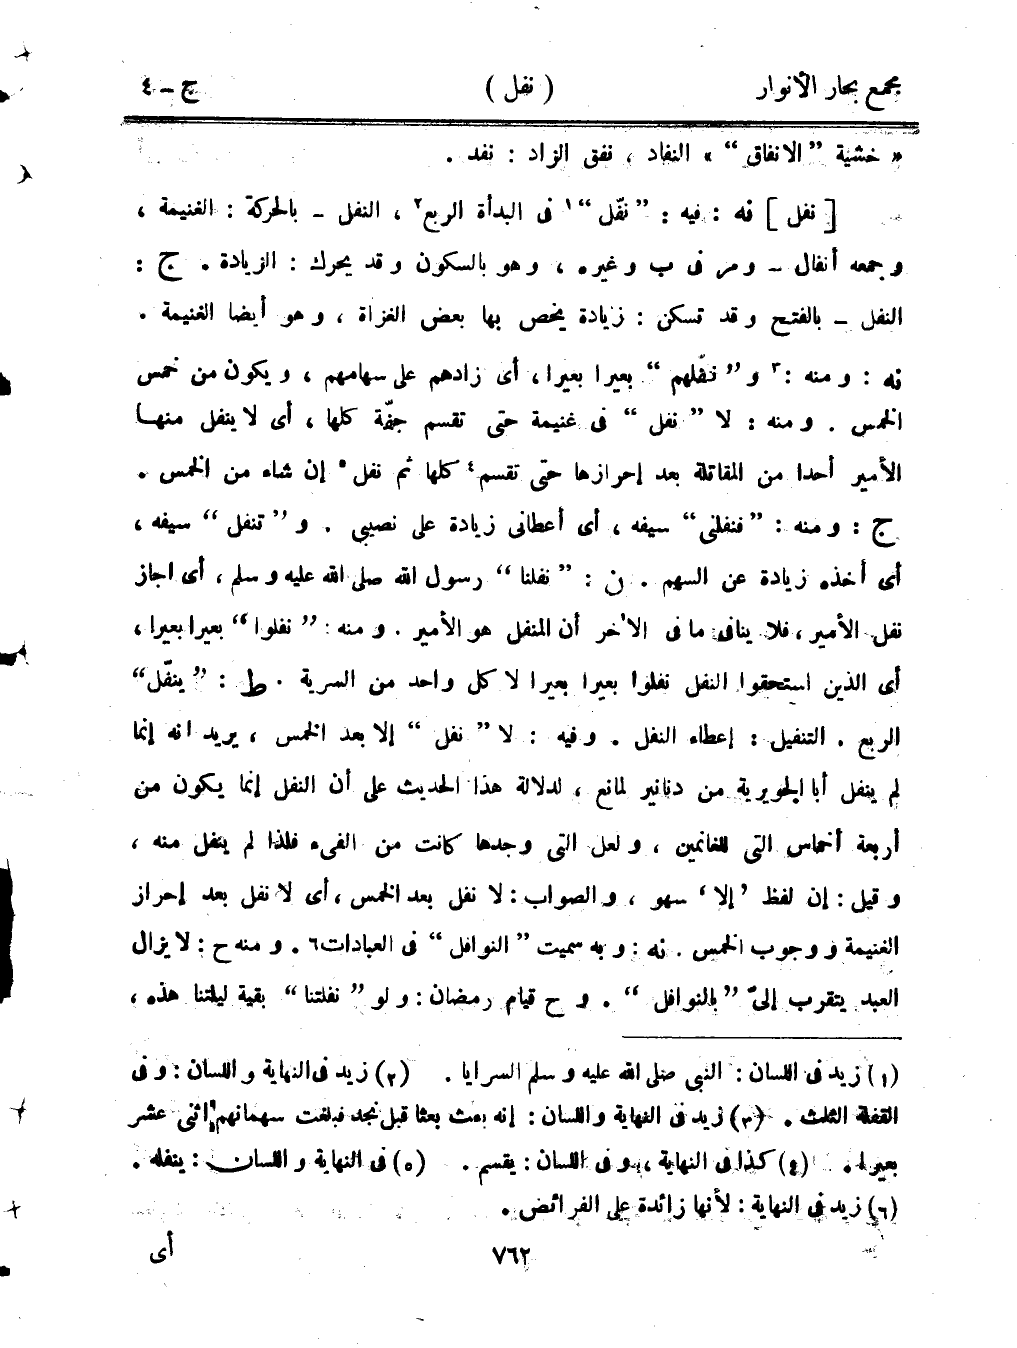 مجمع بحار الأنوار ( نفل ) ج – ٤
« خشية ”الانفاق“ » النفاد ، نفق الزاد : نفد .
[ نفل ] نه : فيه : ”نفّل“١ فى البدأة الربع٢ ، النفل – بالحركة : الغنيمة ،
و جمعه أنفال – و مر فى ب و غيره ، و هو بالسكون و قد يحرك : الزيادة . ج :
النفل – بالفتح و قد تسكن : زيادة يخص بها بعض الغزاة ، و هو أيضا الغنيمة .
نه : و منه :٣ و ”نفّلهم“ بعيرا بعيرا ، أى زادهم على سهامهم ، و يكون من خمس
الخمس . و منه : لا ”نفل“ فى غنيمة حتى تقسم جفّة كلها ، أى لا ينفل منهـا
الأمير أحدا من المقاتلة بعد إحرازها حتى تقسم٤ كلها ثم نفل٥ إن شاء من الخمس .
ج : و منه : ”فنفلنى“ سيفه ، أى أعطانى زيادة على نصيبى . و ”تنفل“ سيفه ،
أى أخذه زيادة عن السهم . ن : ”نفلنا“ رسول الله صلى الله عليه و سلم ، أى اجاز
نفل الأمير ، فلا ينافى ما فى الاٰخر أن المنفل هو الأمير . و منه : ”نفلوا“ بعيرا بعيرا ،
أى الذين استحقوا النفل نفلوا بعيرا بعيرا لا كل واحد من السرية . ط : ”ينفّل“
الربع . التنفيل : إعطاء النفل . و فيه : لا ”نفل“ إلا بعد الخمس ، يريد انه إنما
لم ينفل أبا الجويرية من دنانير لمانع ، لدلالة هذا الحديث على أن النفل إنما يكون من
أربعة أخماس التى للغانمين ، و لعل التى وجدها كانت من الفىء فلذا لم ينفل منه ،
و قيل : إن لفظ ’إلا‘ سهو ، و الصواب : لا نفل بعد الخمس ، أى لا نفل بعد إحراز
الغنيمة و وجوب الخمس . نه : و به سميت ”النوافل“ فى العبادات٦ . و منه ح : لا يزال
العبد يتقرب إلىّ ”بالنوافل“ . و ح قيام رمضان : و لو ”نفلتنا“ بقية ليلتنا هذه ،
(١) زيد فى اللسان : النبى صلى الله عليه و سلم السرايا . (٢) زيد فى النهاية و اللسان : و فى
القفلة الثلث . (٣) زيد فى النهاية و اللسان : إنه بعث بعثا قبل نجد فبلغت سهمانهم اثنى عشر
بعيرا . (٤) كذا فى النهاية ، و فى اللسان : يقسم . (٥) فى النهاية و اللسان : ينفله .
(٦) زيد فى النهاية : لأنها زائدة على الفرائض .
٧٦٢ أى